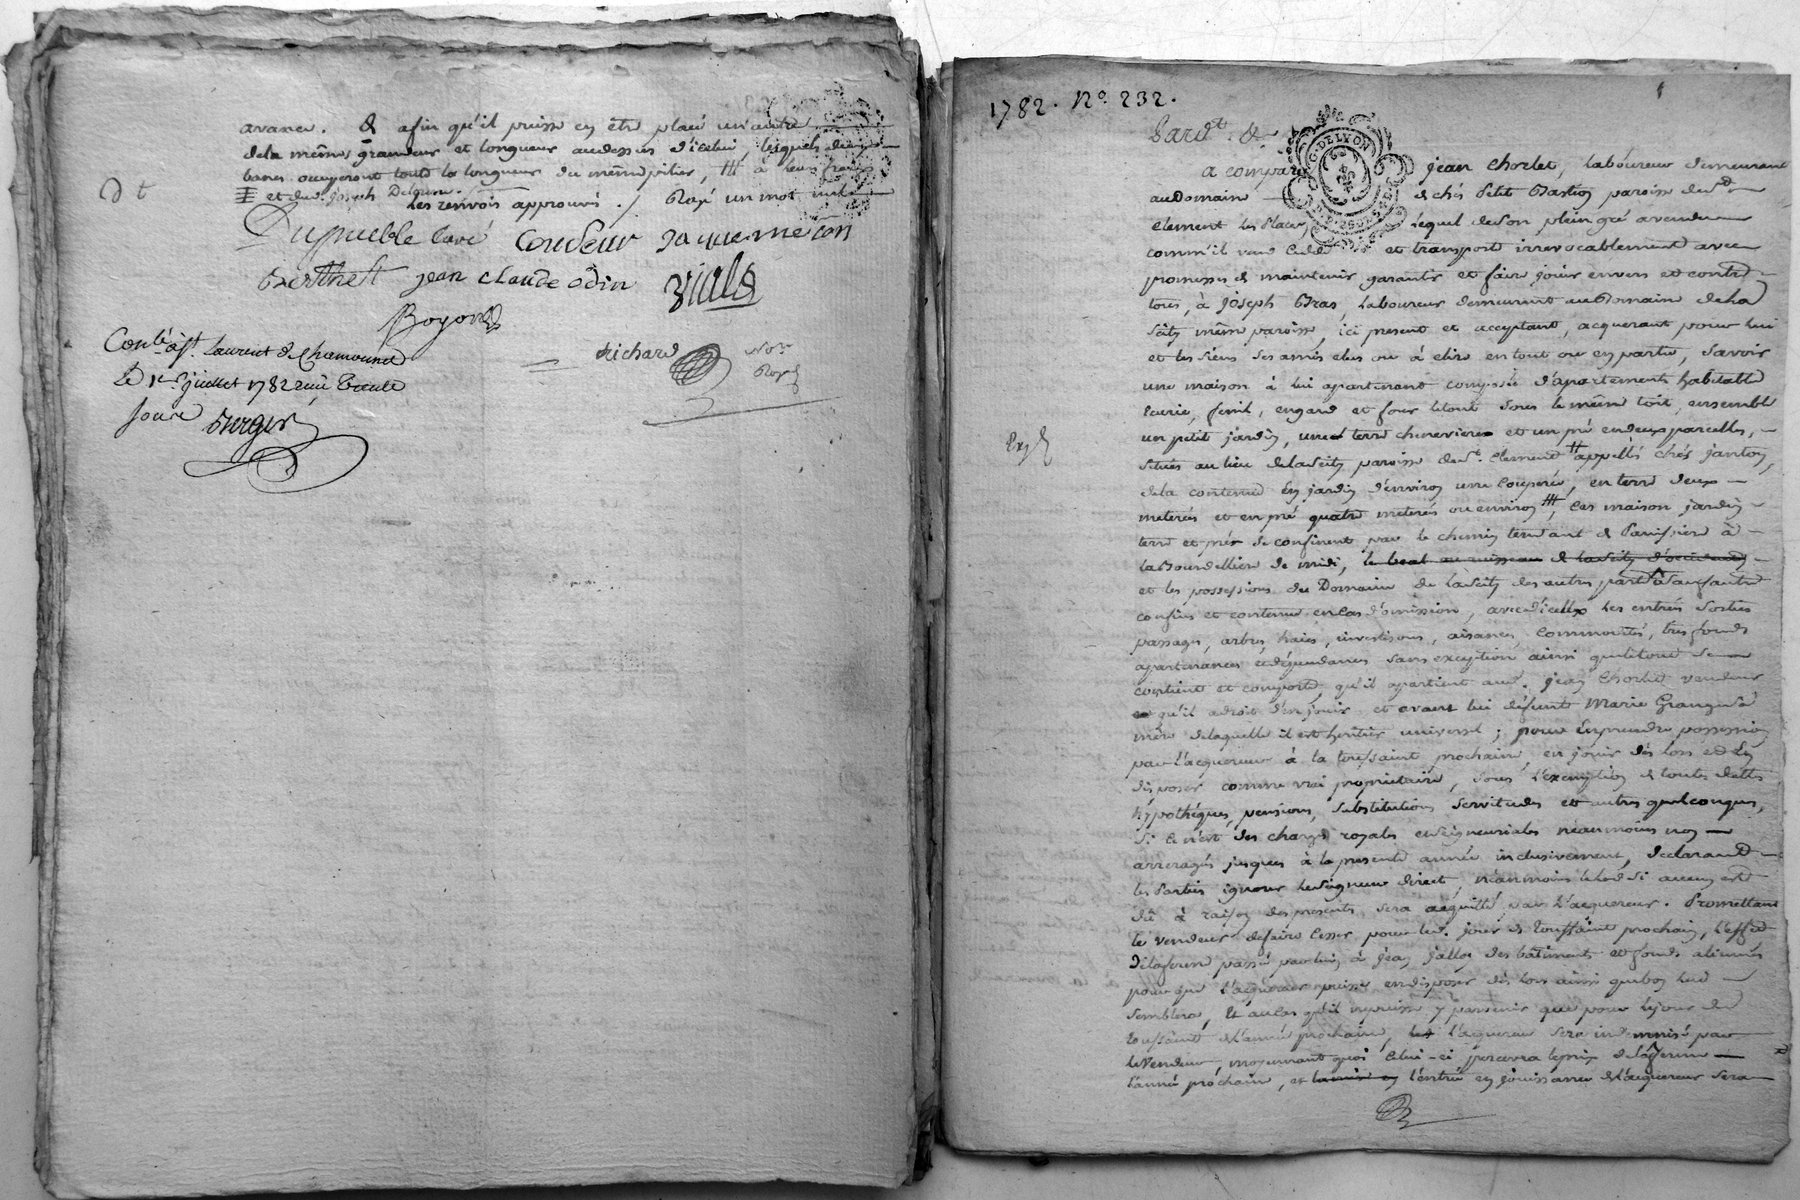 avance. & afin qu'il puisse en etre placé un autre
de la même grandeur et longueur au dessus d'icelui, lesquels deux
bancs occuperont toute la longueur du même pilier, à leurs frais
et dud. joseph
Les renvois approuvés ./ Rayé un mot
D t
Dupueble Curé Coudeur Jaquemecon
Berthet jean claude odin viald
Boyond
richard Not. Royal
Conlé à St. Laurent de Chamousset
Le 1er juillet 1782 reçu trente
sous Berger
1782. No. 232.
Pardt. &c.
G. DE LYON
a comparu jean chorlet, laboureur demeurant
au Domaine de chés Petit Bastien paroisse de St
Clement les Places, lequel de son plein gré a vendu
comm'il vend cede et transporte irrevocablement avec
promesse de maintenir garantir et faire jouir envers et contre
tous, à joseph Bras, laboureur demeurant au Domaine de la
Seity même paroisse, ici present et acceptant, acquerant pour lui
et les siens ses amis elus ou à elire en tout ou en partie, savoir
une maison à lui apartenant composée d'apartements habitable
Ecurie, fenil, engard et four le tout sous le même toit, ensemble
un petit jardin, une terre cheneviere et un pré en deux parcelles,
situés au lieu de la Seity paroisse de St. Clement appellés chés jantoy,
de la contenue En jardin d'environ une Couperée, en terre deux
meterées et en pré quatre meterés ou environ, les maison jardin
terre et prés se confinent par le chemin tendant de Panissiere à
la Bourdelliere de midi, le beal au ruisseau de la Seity d'occident
et les possessions du Domaine de la Seity des autres parts sauf autre
confins et contenue en cas d'omission, avec d'iceux les entrées sorties
passages, arbres, haies, investisons, aisances, commoditées, tres fonds
apartenances et dépendances sans exception ainsi que le tout se
contient et comporte, qu'il apartient aud. jean Chorlet vendeur
qu'il a droit d'en jouir et avant lui défunte Marie Grange sa
mère de laquelle il est heritier universel ; pour En prendre possession
par l'acquereur à la toussaint prochaine, en jouir dès lors et En
disposer comme vrai proprietaire, sous l'exemption de toutes dettes
hypothéques, pensions, substitutions servitudes et autres quelconques,
si ce n'est des charges royales et seigneuriales neanmoins non
arreragés jusques à la presente année inclusivement, declarand
les parties ignorer le seigneur direct, néanmoins le lod si aucun est
dû à raison des presentes sera acquitté par l'acquereur. Promettant
le vendeur de faire cesser pour led. jour de toussaint prochain, l'effet
de la ferme passée par lui à jean jallon des bâtiments et fonds alienés
pour que l'acquereur puisse en disposer dès lors ainsi que bon lui
semblera, Et au cas qu'il ne puisse y parvenir que pour le jour de
toussaint de l'année prochaine, l'acquereur sera indemnisé par
le Vendeur, moyennant quoi celui-ci percevra le prix de la ferme
l'année prochaine, et l'entrée en jouissance de l'acquereur sera
Exp.